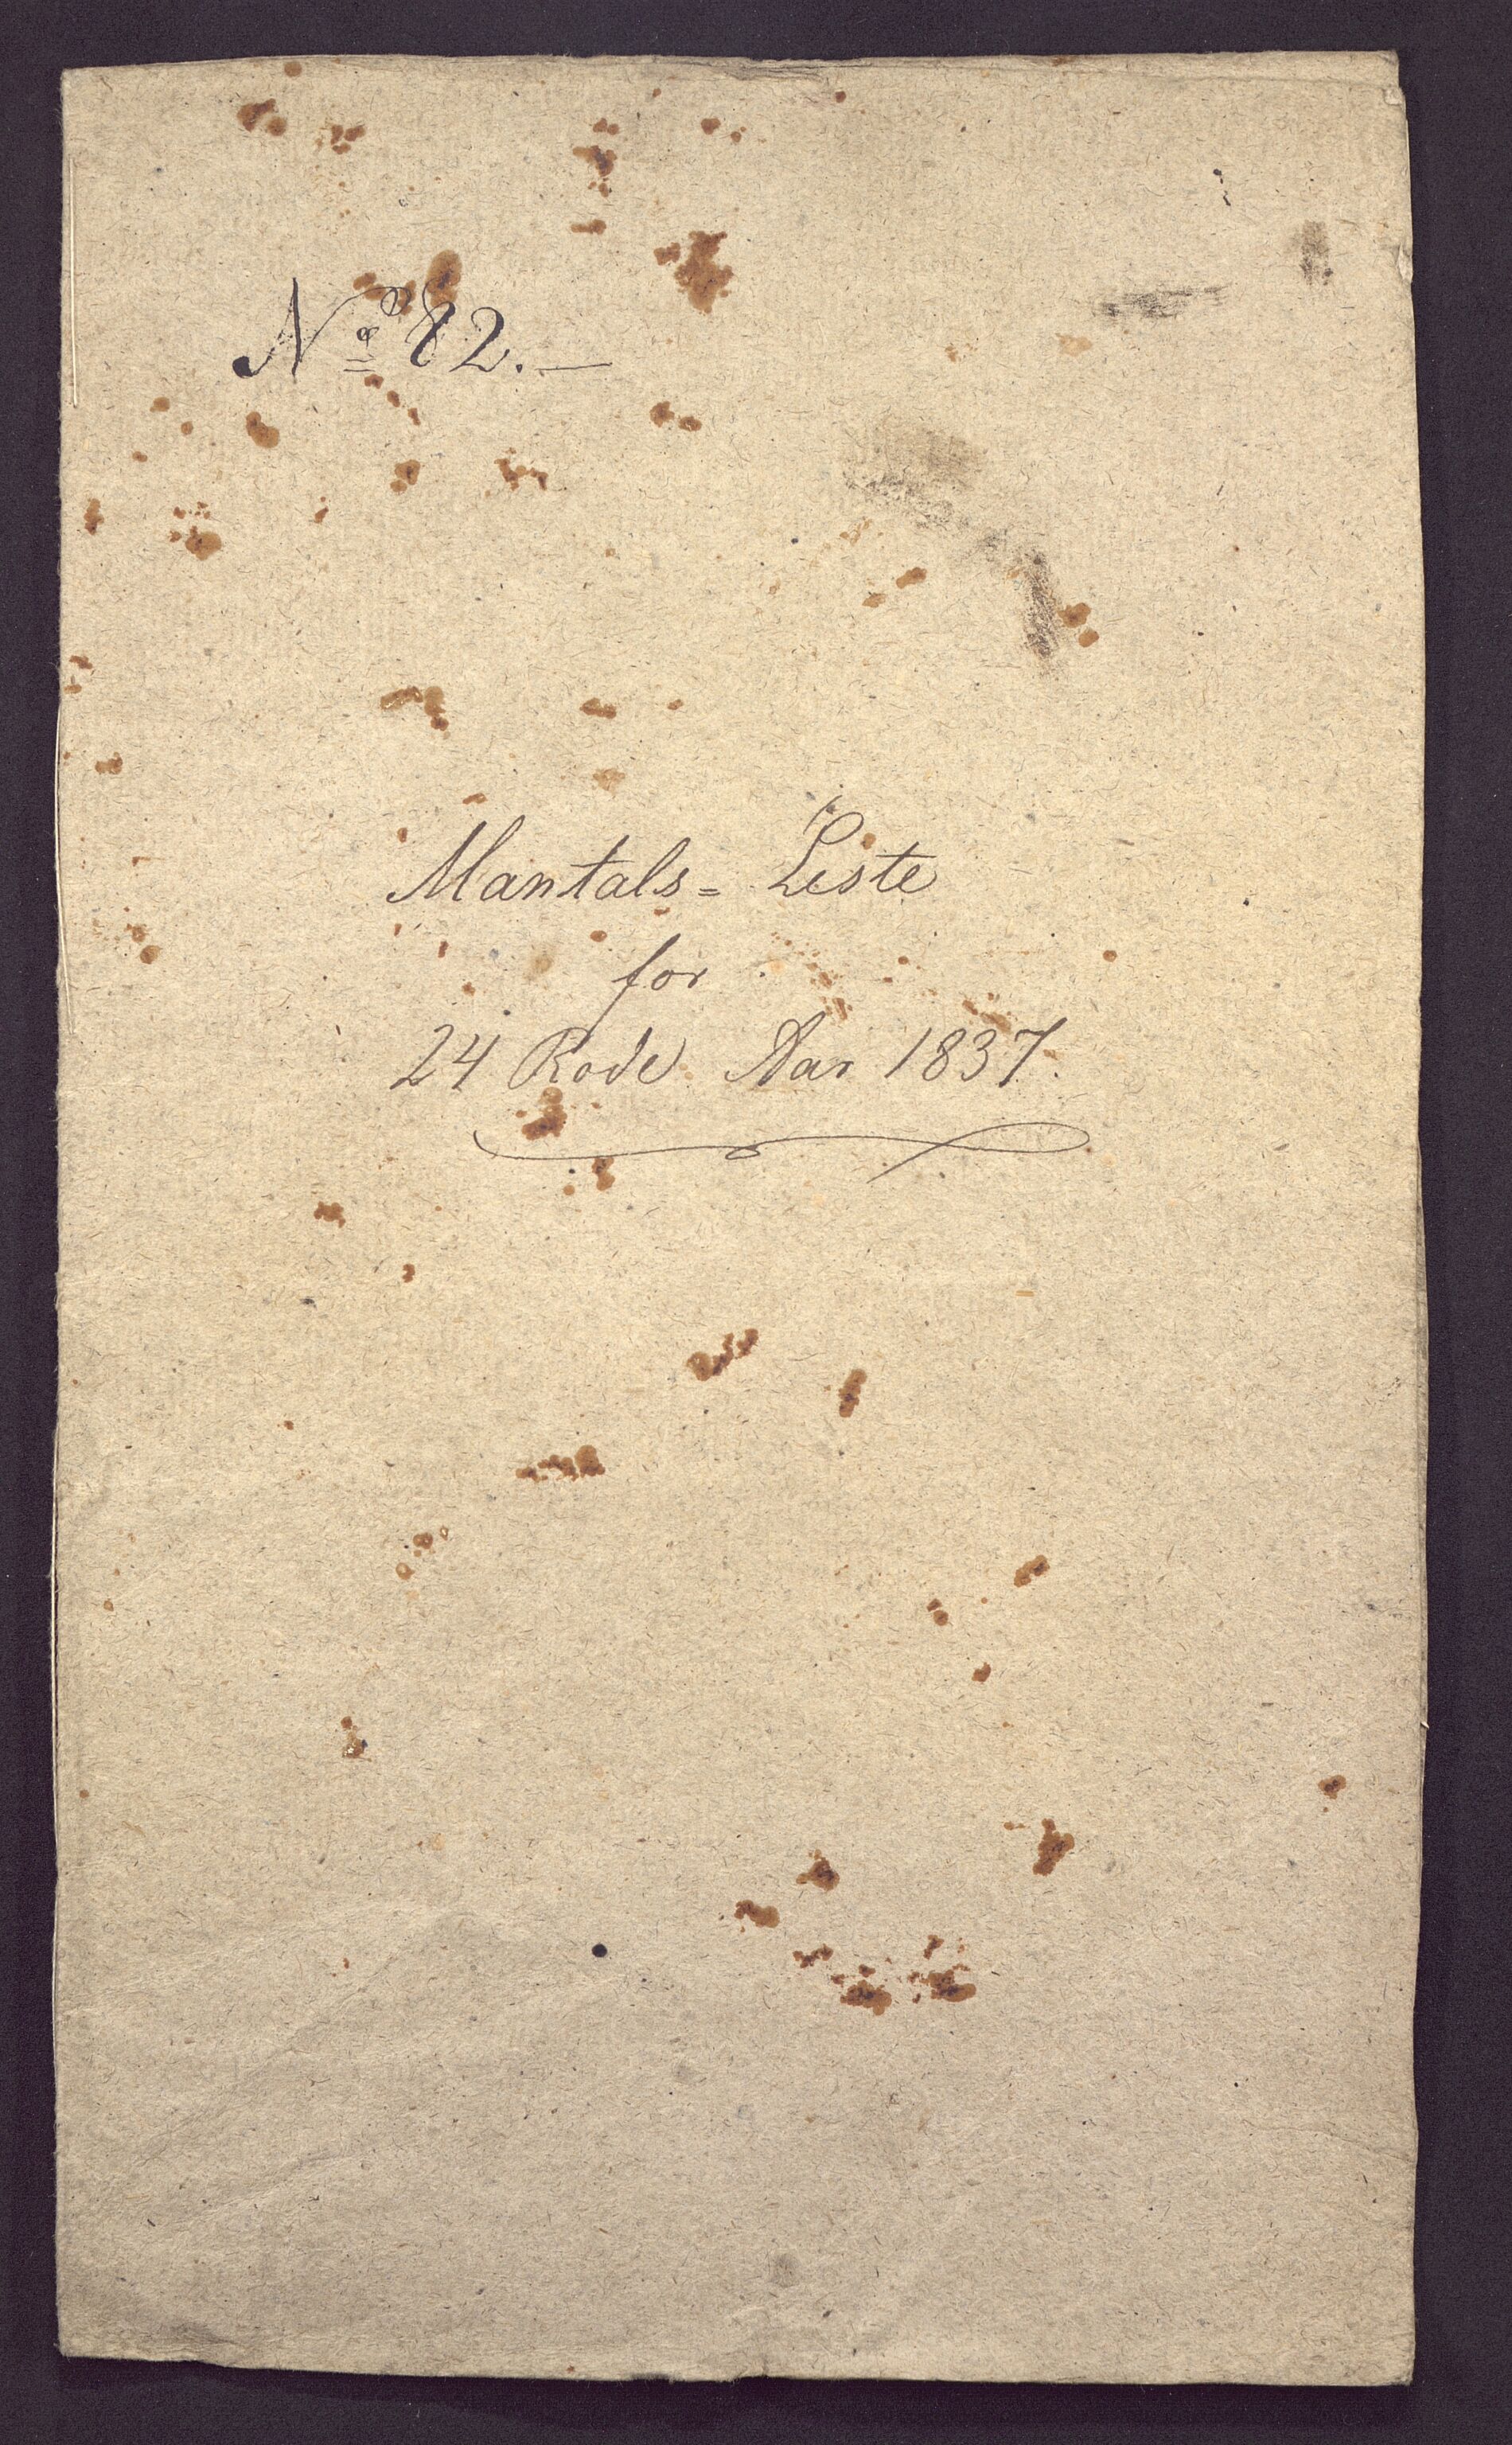 No 82. —
Mantals= Liste
for
24 Rode Aar 1837.